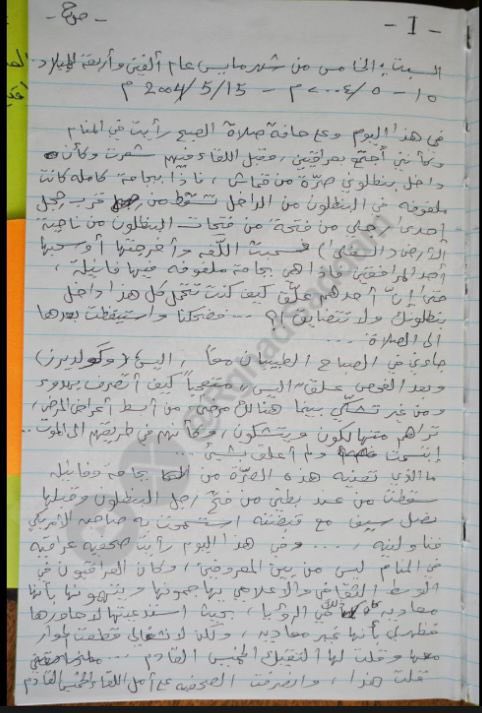 - 1 -
السبت: الخامس من شهر مايس عام ألفين وأربعة للميلاد.
15 - 5 / 2004 م - 2004/5/15 م
في هذا اليوم وعلى حافة صلاة الصبح رأيت في المنام
وكأني أجتمع بمرافقين، وقبل اللقاء بهم شعرت وكأن
داخل بنطلوني صرّة من قماش، فإذا بجامة كاملة كانت
ملفوفة في البنطلون من الداخل تسقط من قرب رجل
إحدى رجلي من فتحة من فتحات البنطلون من ناحية
الأرض (السفلى) فسحبت اللفة وأخرجتها أو سحبها
أحد المرافقين فإذا هي بجامة ملفوفة فيها فانيلة،
حتى إنّ أحدهم علّق كيف كنت تتحمل كل هذا داخل
بنطلونك ولا تتضايق؟! ... فضحكنا واستيقظت بعدها
الى الصلاة ...
جاءني في الصباح الطبيبان معاً، اليس و(كولديرز)
وبعد الفحص علق اليس متعجباً كيف أتصرف بهدوء
ومن غير تشكّي بينما هنالك مرضى، من أبسط أعراض المرض،
تراهم متهالكون ويتشكون، وكأنهم في طريقهم الى الموت..
إبتسمت ولم أعلق بشيء ...
ما الذي تعنيه هذه الصرّة من بجامة وفانيلة
سقطت من عند بطني من فتح رجل البنطلون وقبلها
نصل سيف مع قبضته استمتعت به صاحبه الأمريكي
فناولنيه، .... وفي هذا اليوم رأيت صحفية عراقية
في المنام ليس من بين المعروفين، وكان العراقيون في
الوسط الثقافي والإعلامي يهاجمونها ويتهمونها بأنها
معادية في الرؤيا، بحيث استدعيتها لأحاورها
فتظهر لي بأنها غير معادية، ولكن لانشغالي قطعت الحوار
معها وقلت لها ألتقيك الخميس القادم ...
قلت هذا، وانصرفت الصحفية على أمل اللقاء الخميس القادم